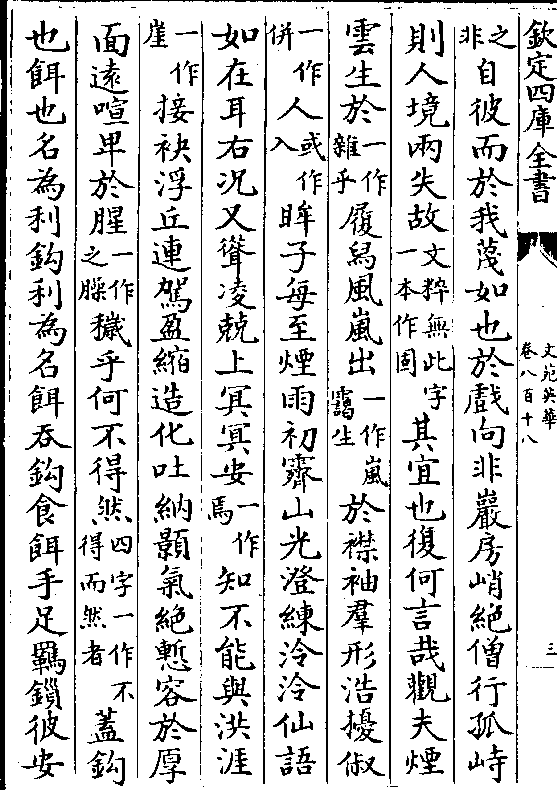 欽定四庫全書
文苑英華
卷八百十八
三
之非自彼而於我蔑如也於戲向非巖房峭絶僧行孤峙
則人境兩失故文粹無此字一本作固其宜也復何言哉觀夫煙
雲生於一作雜乎履舄風嵐出一作嵐靄生於襟袖羣形浩擾俶
併一作人或作入眸子每至煙雨初霽山光澄練泠泠仙語
如在耳右况又聳凌兢上冥冥安一作焉知不能與洪涯
一作崖接袂浮丘連駕盈縮造化吐納顥氣絶慙容於厚
面遠喧卑於腥一作之臊穢乎何不得然四字一作不得而然者蓋鈎
也餌也名為利鈎利為名餌吞鈎食餌手足羈鎖彼安